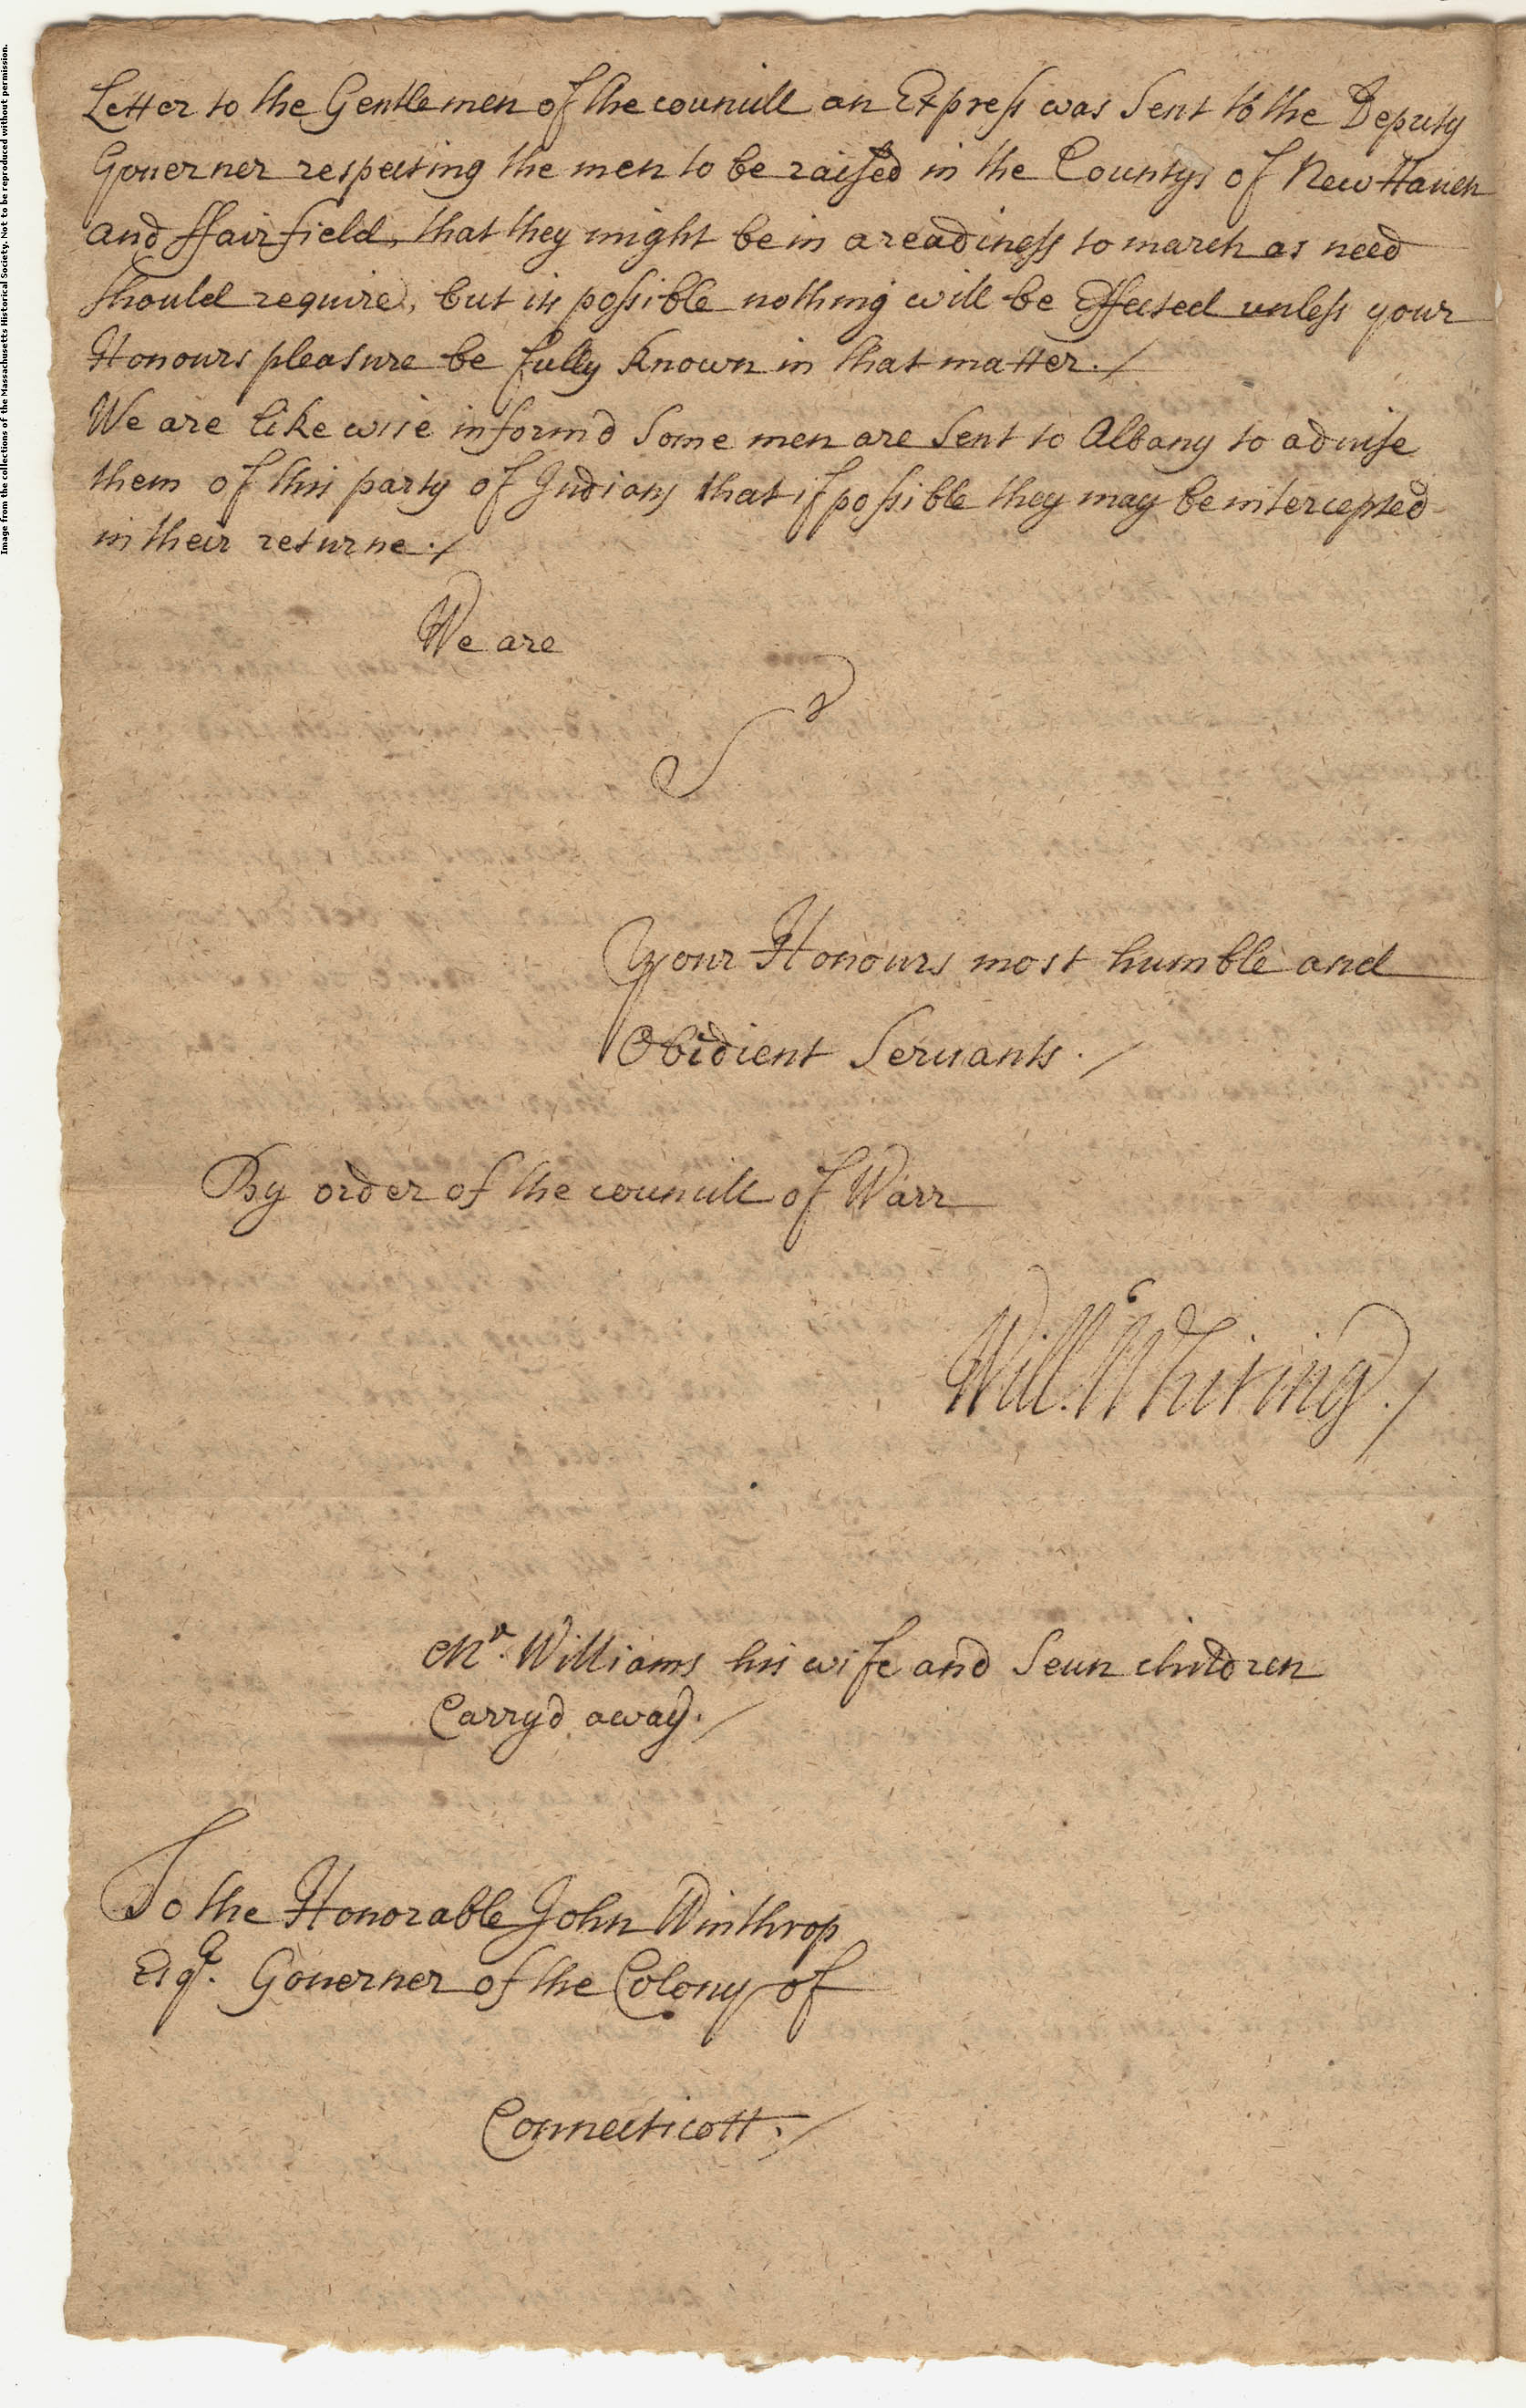 Letter to the Gentlemen of the councill an Express was Sent to the Deputy
Gouerner respecting the men to be raised in the Countys of New Hauen
and ffairfield, that they might be in a readiness to march as need
should require, but its possible nothing will be Effected unless your
Honours pleasure be fully Known in that matter./
We are like wise inform'd Some men are Sent to Albany to aduise
them of this party of Indians that if possible they may be intercepted
in their returne./
We are
S
Your Honours most humble and
Obidient Seruants./
By order of the councill of Warr
Will. Whiting./
Mr. Williams his wife and Seun children
Carryd away./
To the Honorable John Winthrop
Esqr. Gouerner of the Colony of
Connecticott./
Image from the collections of the Massachusetts Historical Society. Not to be reproduced without permission.